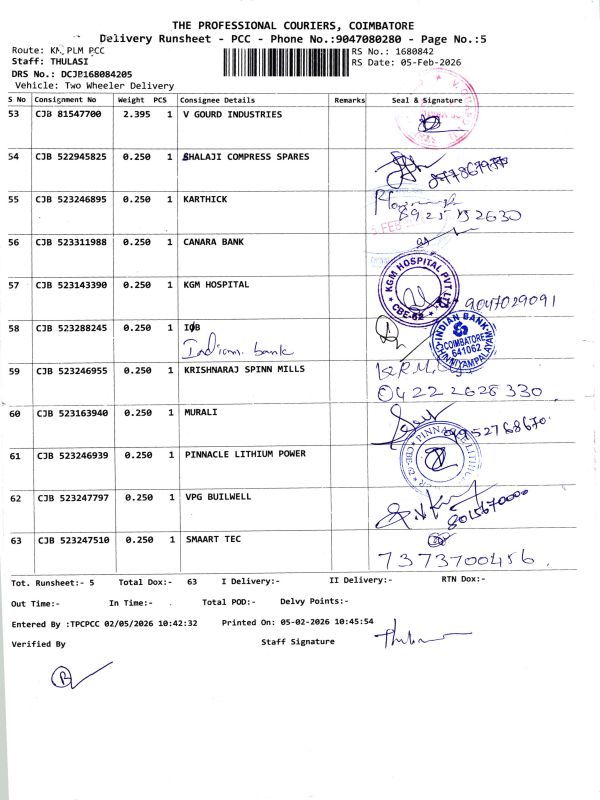 THE PROFESSIONAL COURIERS, COIMBATORE
Delivery Runsheet - PCC - Phone No.:9047080280 - Page No.:5
Route: KM PLM PCC
RS No.: 1680842
Staff: THULASI
RS Date: 05-Feb-2026
DRS No.: DCJB168084205
Vehicle: Two Wheeler Delivery
S No Consignment No Weight PCS Consignee Details Remarks Seal & Signature
53 CJB 81547700 2.395 1 V GOURD INDUSTRIES
54 CJB 522945825 0.250 1 BHALAJI COMPRESS SPARES
55 CJB 523246895 0.250 1 KARTHICK
8925152630
5 FEB
56 CJB 523311988 0.250 1 CANARA BANK
57 CJB 523143390 0.250 1 KGM HOSPITAL
KGM HOSPITAL PVT LTD
CBE-62
9047029091
58 CJB 523288245 0.250 1 IOB
Indian bank
INDIAN BANK
COIMBATORE
641062
CHINNIYAMPALAYAM
59 CJB 523246955 0.250 1 KRISHNARAJ SPINN MILLS
K.R.M.
0422 2628 330
60 CJB 523163940 0.250 1 MURALI
9952768670
61 CJB 523246939 0.250 1 PINNACLE LITHIUM POWER
PINNACLE
62 CJB 523247797 0.250 1 VPG BUILWELL
8015670000
63 CJB 523247510 0.250 1 SMAART TEC
7373700456
Tot. Runsheet:- 5 Total Dox:- 63 I Delivery:- II Delivery:- RTN Dox:-
Out Time:- In Time:- Total POD:- Delvy Points:-
Entered By :TPCPCC 02/05/2026 10:42:32 Printed On: 05-02-2026 10:45:54
Verified By Staff Signature
R